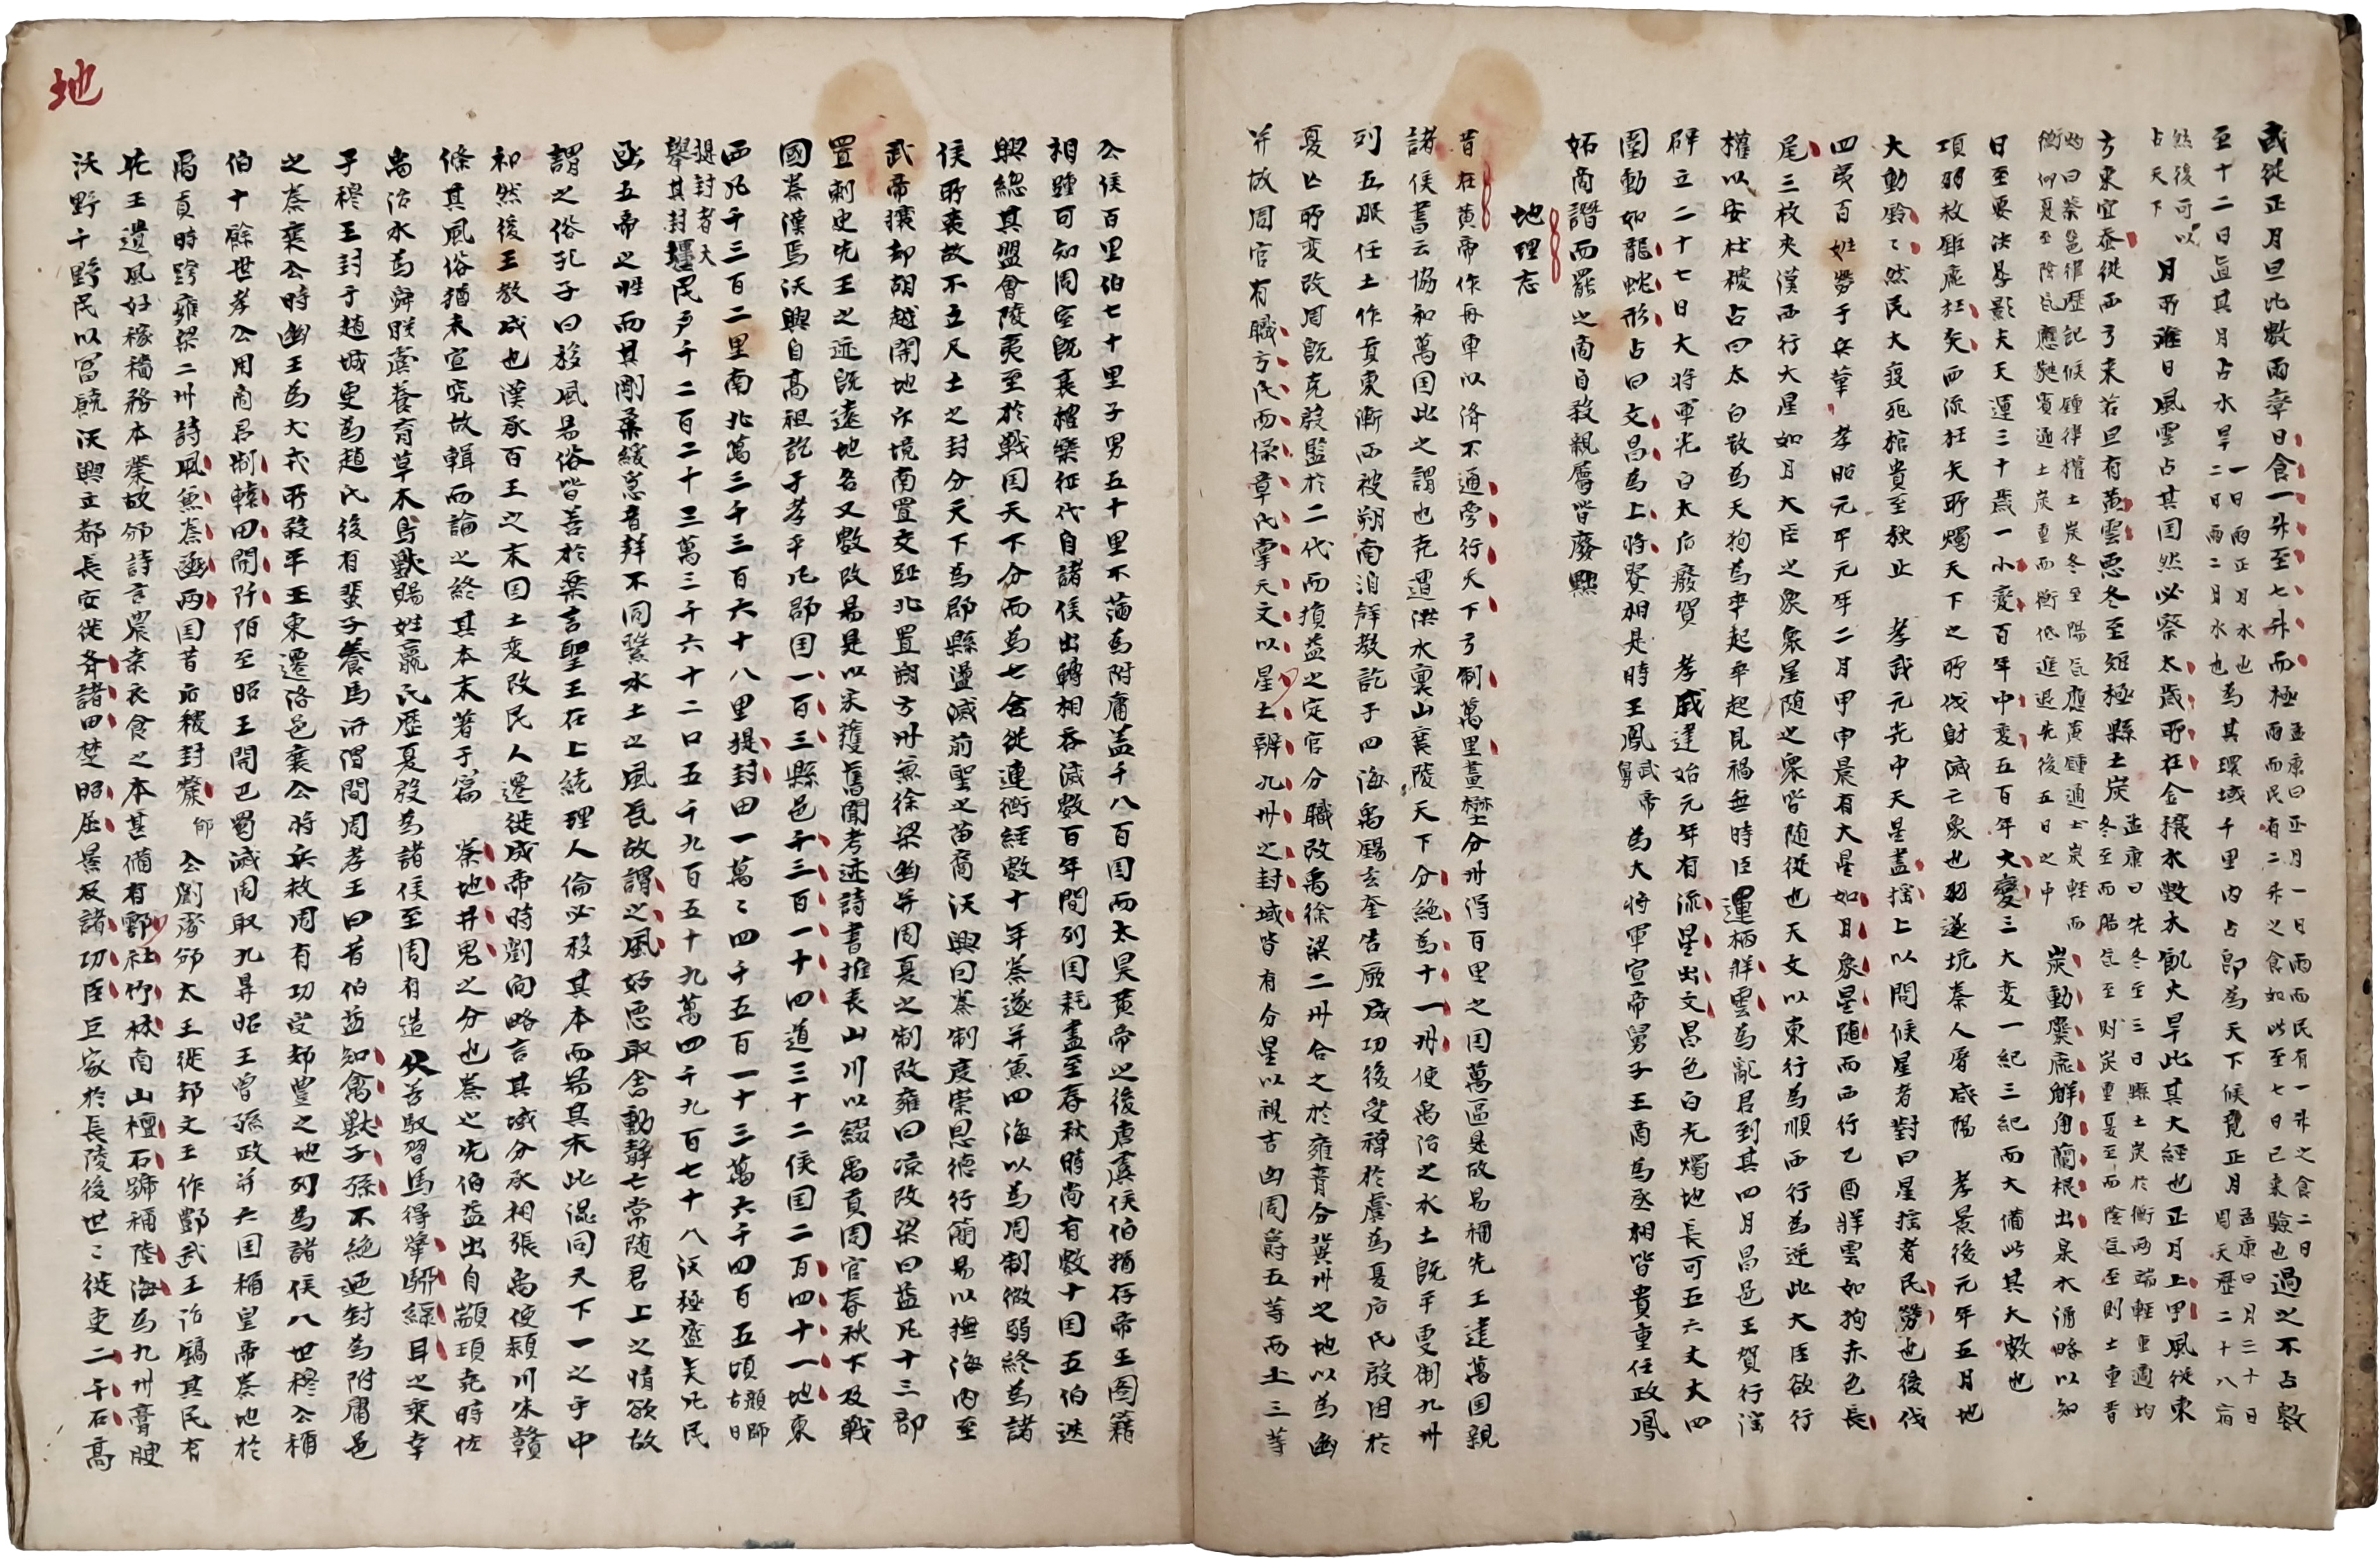 或從正月旦比數雨率日食一升至七升而極孟康曰正月一日雨而民有一升之食二日雨而民有二升之食如此至七日已來驗也過之不占數
至十二日直其月占水旱一日雨正月水也二日雨二月水也為其環域千里內占即為天下候竟正月孟康曰月三十日周天歷二十八宿
然後可以占天下月所離日風雲占其国然必察太歲所在金穰水毀木飢火旱此其大經也正月上甲風從東
方東宜蚕從西方來若旦有黃雲悪冬至短極縣土炭孟康曰先冬至三日縣土炭於衡两端輕重適均冬至而陽気至則炭重夏至而陰気至則土重晋
灼曰蔡邕律歷記候鍾律權土炭冬至陽気應黃鍾通土炭輕而衡仰夏至陰気應甤賓通土炭重而衡低進退先後五日之中炭動麋鹿解角蘭根出泉水涌略以知
日至要決晷影夫天運三十歲一小変百年中変五百年大變三大変一紀三紀而大備此其大數也
項羽救鉅鹿枉矢西流枉矢所燭天下之所伐射滅亡象也羽遂坑秦人屠咸陽　孝景後元年五月地
大動鈴々然民大疫死棺貴至秋止　孝武元光中天星盡搖上以問候星者對曰星搖者民勞也後伐
四夷百姓勞于兵革　孝昭元平元年二月甲申晨有大星如月衆星随而西行乙酉牂雲如狗赤色長
尾三枚夾漢西行大星如月大臣之象衆星随之衆皆随從也天文以東行為順西行為逆此大臣欲行
權以安社稷占曰太白散為天狗為卒起卒起見禍無時臣運柄牂雲為乱君到其四月昌邑王賀行淫
辟立二十七日大将軍光白太后廢賀　孝成建始元年有流星出文昌色白光燭地長可五六丈大四
圍動如龍蛇形占曰文昌為上将貴相是時王鳳武帝舅為大将軍宣帝舅子王商為丞相皆貴重任政鳳
妬商譖而罷之商自殺親屬皆廢黜
地理志
昔在黃帝作舟車以済不通旁行天下方制萬里畫壄分州得百里之国萬區是故易称先王建萬国親
諸侯書云協和萬国此之謂也堯遭洪水褱山襄陵天下分絶為十一州使禹治之水土既平更制九州
列五服任土作貢東漸西被朔南洎聲教訖于四海禹錫玄圭告厥成功後受禅於虞為夏后氏殷因於
夏亡所変改周既克殷監於二代而損益之定官分職改禹徐梁二州合之於雍青分冀州之地以為幽
并故周官有職方氏而保章氏掌天文以星土辨九州之封域皆有分星以視吉凶周爵五等而土三等
公侯百里伯七十里子男五十里不滿為附庸蓋千八百国而太昊黃帝之後唐虞侯伯猶存帝王圖籍
相踵可知周室既衰禮樂征伐自諸侯出轉相吞滅數百年間列国耗盡至春秋時尚有數十国五伯迭
興緫其盟會陵夷至於戦国天下分而為七合從連衡經數十年秦遂并兼四海以為周制微弱終為諸
侯所喪故不立尺土之封分天下為郡縣盪滅前聖之苗裔漢興因秦制度崇恩徳行簡易以撫海內至
武帝攘却胡越開地斥境南置交趾北置朔方州兼徐梁幽并周夏之制改雍曰凉改梁曰益凡十三部
置刺史先王之迹既遠地名又數改易是以采獲舊聞考迹詩書推表山川以綴禹貢周官春秋下及戦
國秦漢焉漢興自高祖訖于孝平凡郡国一百三縣邑千三百一十四道三十二侯国二百四十一地東
西九千三百二里南北萬三千三百六十八里提封田一萬々四千五百一十三萬六千四百五頃顔師古曰
提封者大舉其封疆民戶千二百二十三萬三千六十二口五千九百五十九萬四千九百七十八漢極盛矣凡民
函五帝之性而其剛柔緩急音聲不同繫水土之風気故謂之風好悪取舍動静亡常随君上之情欲故
謂之俗孔子曰移風易俗皆善於樂言聖王在上統理人倫必移其本而易其末此混同天下一之乎中
和然後王教成也漢承百王之末国土変改民人遷徙成帝時劉向略言其域分承相張禹使頴川朱贛
條其風俗猶未宣究故輯而論之終其本末著于篇　秦地井鬼之分也秦之先伯益出自顓頊堯時佐
禹治水為舜朕虞養育草木鳥獸賜姓嬴氏歷夏殷為諸侯至周有造父善馭習馬得華駵綠耳之乗幸
于穆王封于趙城更為趙氏後有蜚子養馬汧渭間周孝王曰昔伯益知禽獸子孫不絶廼封為附庸邑
之秦襄公時幽王為犬戎所殺平王東遷洛邑襄公将兵救周有功受䢴豊之地列為諸侯八世穆公称
伯十餘世孝公用商君制轅田開阡陌至昭王開巴蜀滅周取九昇昭王曾孫政并六国稱皇帝秦地於
禹貢時跨雍梁二州詩風兼秦豳两国昔后稷封斄邰公劉處邠太王徙䢴文王作酆武王治鎬其民有
先王遺風好稼穡務本業故邠詩言農桒衣食之本甚備有鄠社竹林南山檀石號稱陸海為九州膏腴
沃野千野民以冨饒漢興立都長安徙斉諸田楚昭屈景及諸功臣巨家於長陵後世々徙吏二千石髙
地